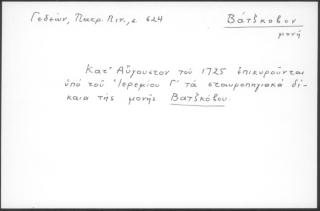 Γεδεών, Πατρ. Πιν., σ. 624
Βάτσκοβον
μονή
Κατ' Αὔγουστον τοῦ 1725 ἐπικυροῦνται
ὑπὸ τοῦ Ἱερεμίου Γ' τὰ σταυροπηγιακὰ δί-
καια τῆς μονῆς Βατσκόβου.